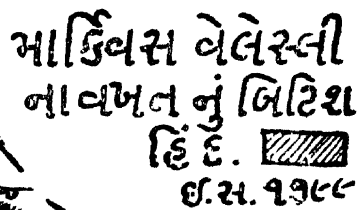 માર્કિવસ વેલેસ્લી
નાવખત નું બ્રિટિશ
હિંદ.
ઇ.સ. ૧૭૯૯